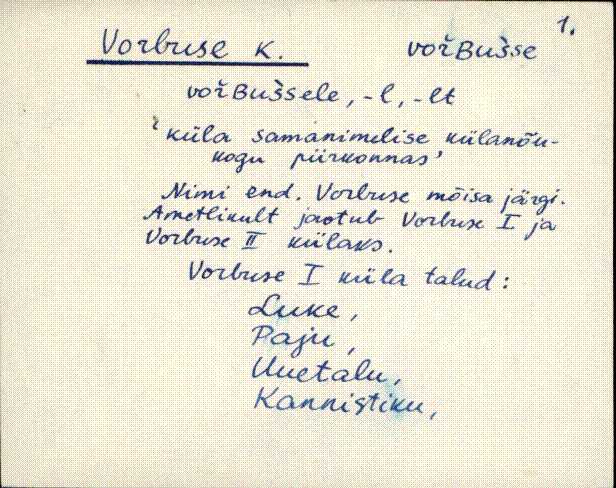 1.
Vorbuse k. vořBušse
vořBušsele, -l, -lt
'küla samanimelise külanõu-
kogu piirkonnas'
Nimi end. Vorbuse mõisa järgi.
Ametlikult jaotub Vorbuse I ja
Vorbuse II külaks.
Vorbuse I küla talud:
Luke,
Paju,
Uuetalu,
Kannistiku,